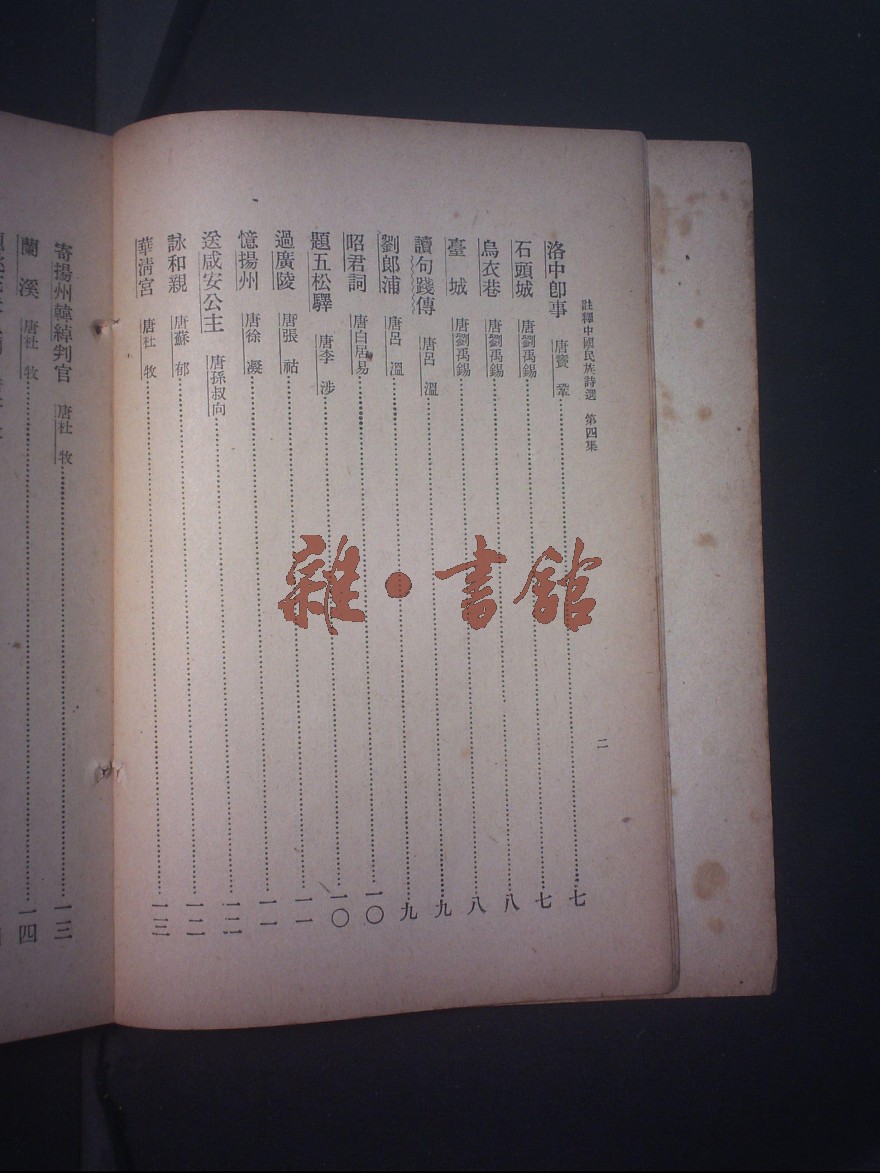 註釋中國民族詩選 第四集
二
洛中卽事 唐竇鞏 七
石頭城 唐劉禹錫 七
烏衣巷 唐劉禹錫 八
臺城 唐劉禹錫 八
讀句踐傳 唐呂溫 九
劉郎浦 唐呂溫 九
昭君詞 唐白居易 一〇
題五松驛 唐李涉 一〇
過廣陵 唐張祜 一一
憶揚州 唐徐凝 一一
送咸安公主 唐孫叔向 一二
詠和親 唐蘇郁 一二
華淸宮 唐杜牧 一三
寄揚州韓綽判官 唐杜牧 一三
蘭溪 唐杜牧 一四
雜·書館